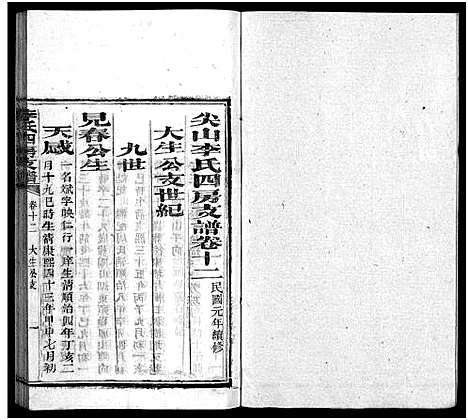 尖山李氏四房支譜卷十二 民國元年續修
大生公支世紀
九世
見春公生
天咸
一名斌字映仁行一庠生清順治四年丁亥二
月十九巳時生清康熙四十三年甲申七月初
李氏四房支譜 卷十二 大生公支 一